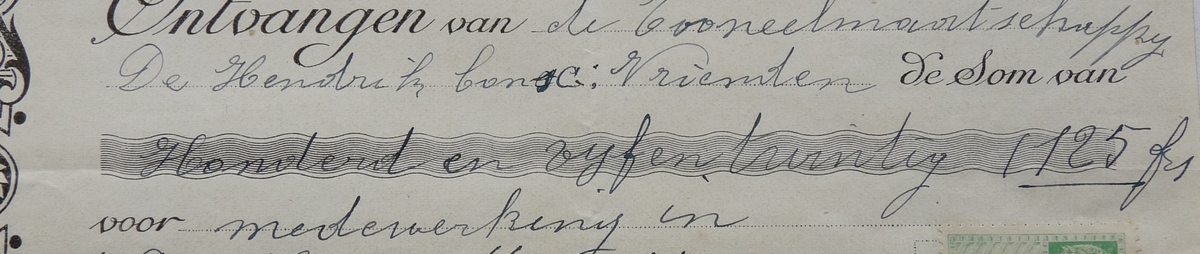 Ontvangen van de Tooneelmaatschappy
De Hendrik Consc: Vrienden de Som van
Honderd en vyfentwintig (125 frs
voor medewerking in